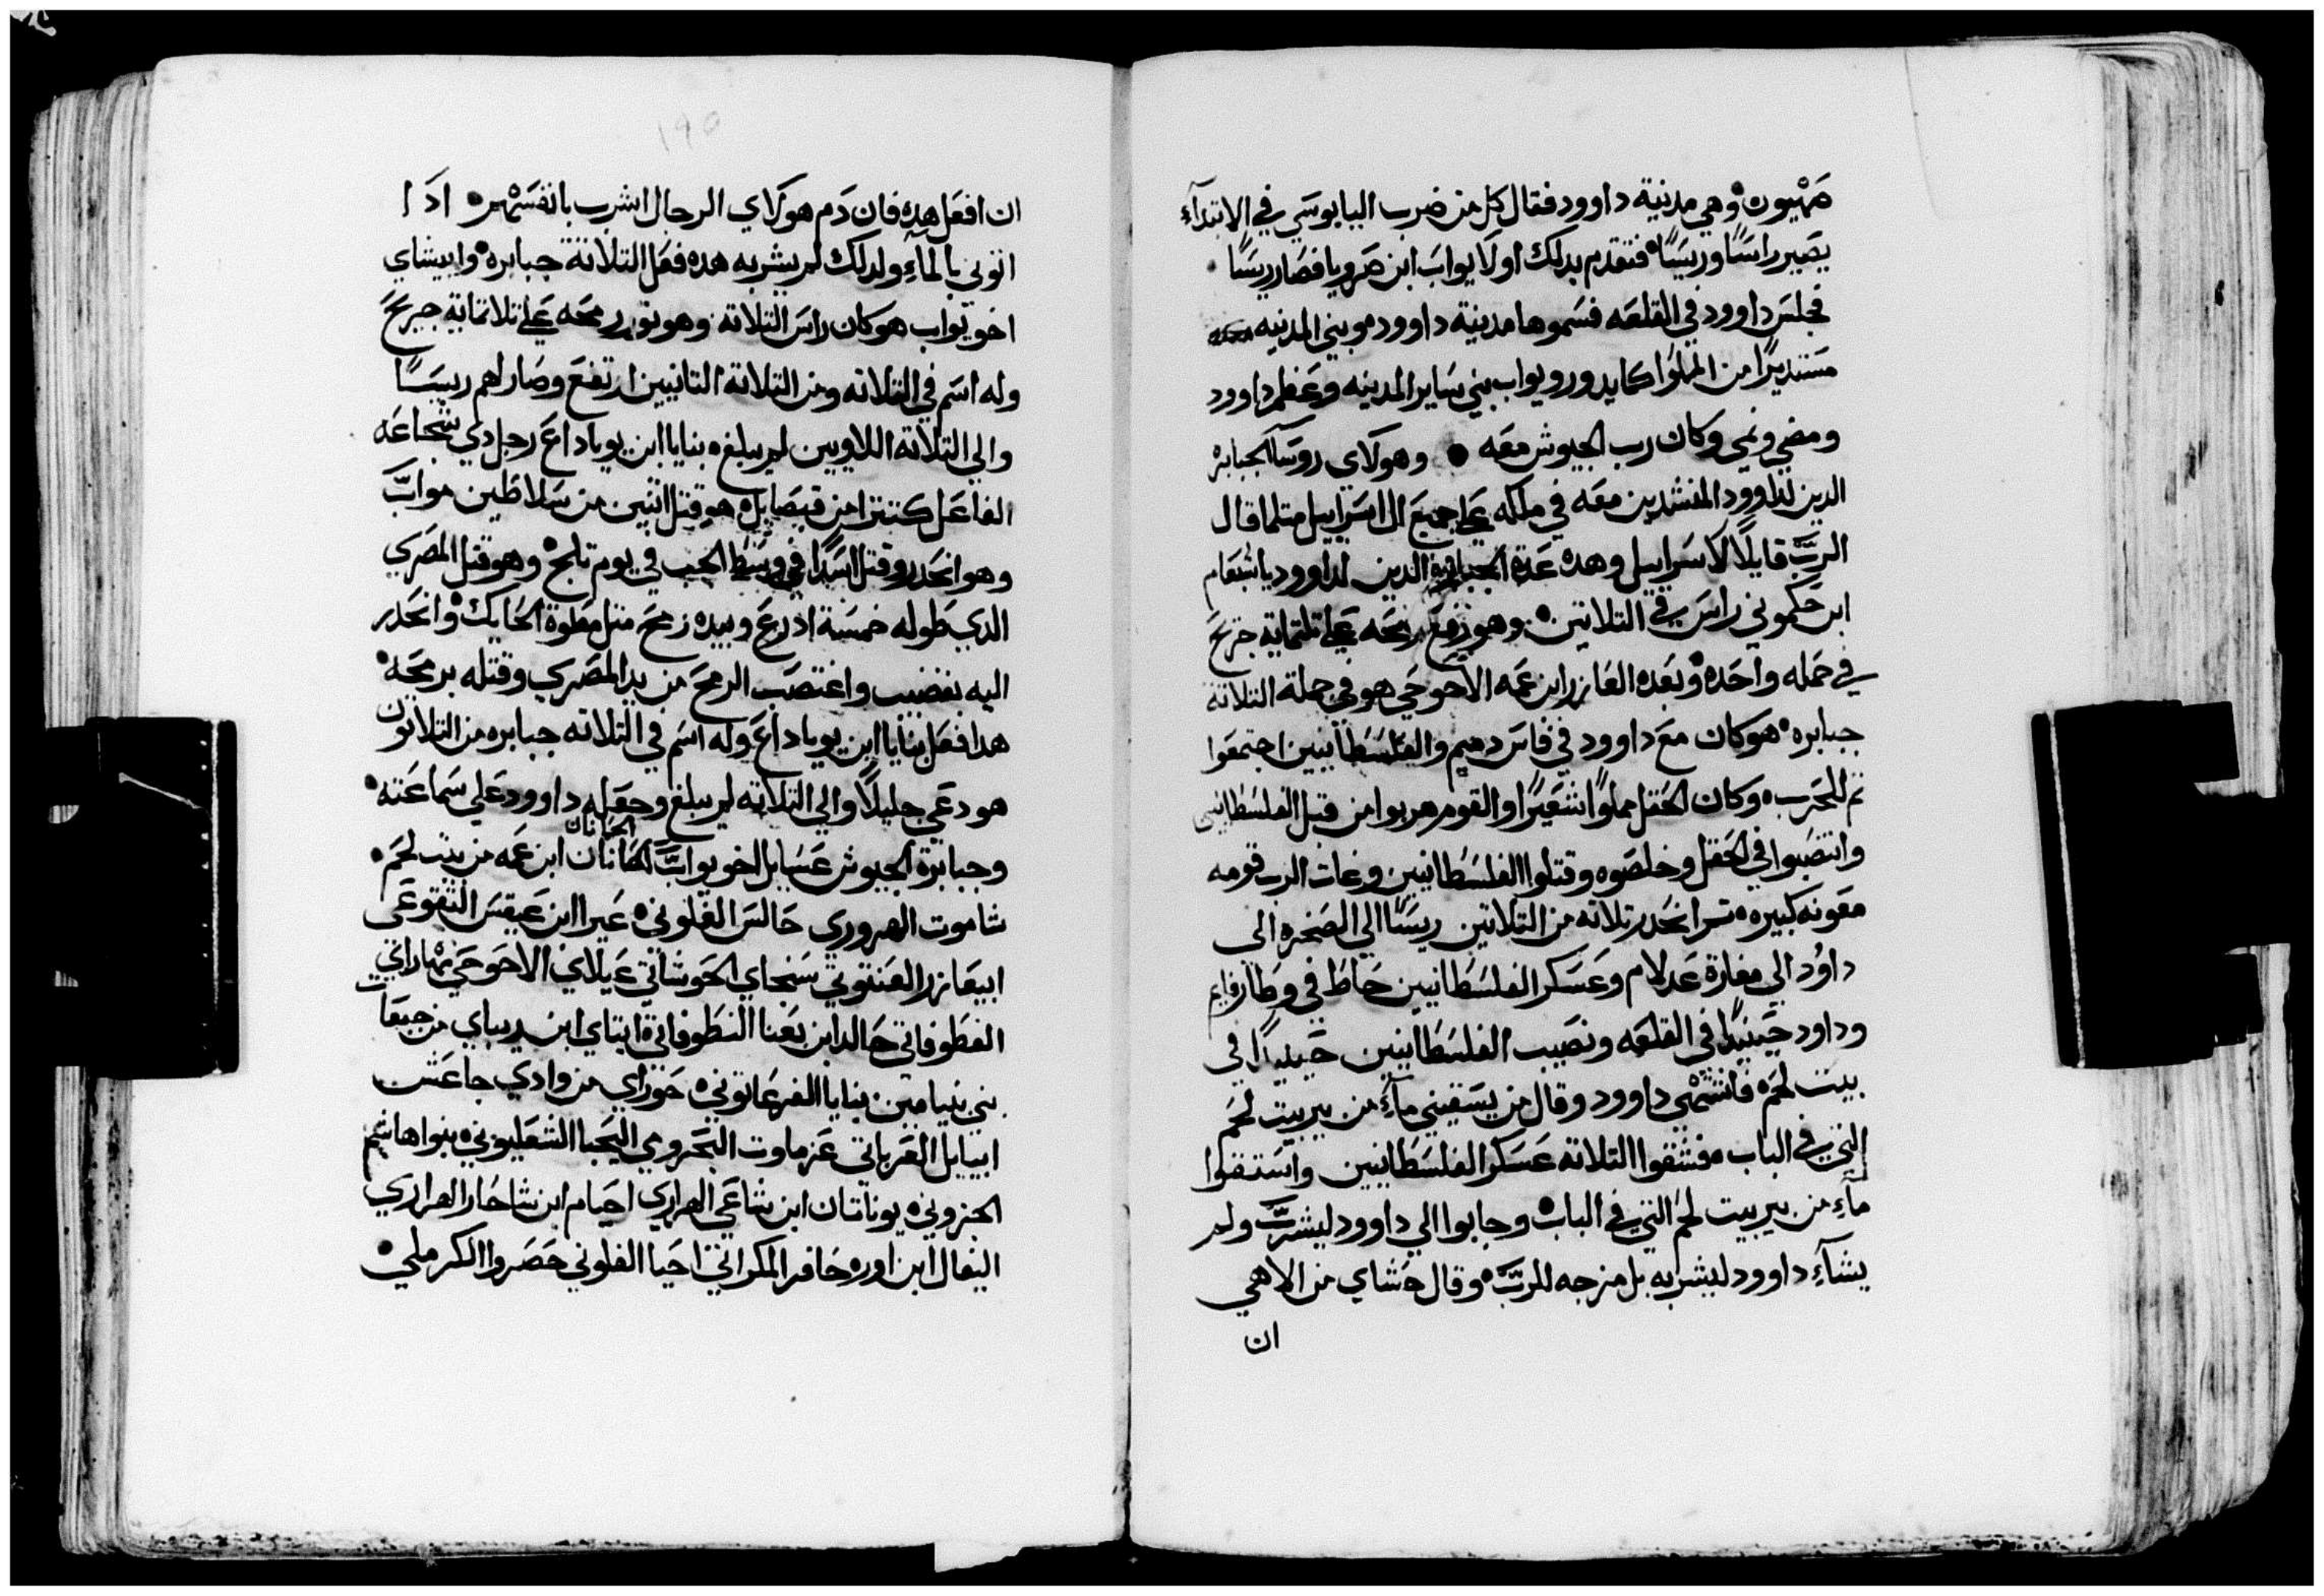 صهيون وهي مدنية داوود فقال كل من ضرب اليابوسي في الابتداء
يصير راسًا وريسًا فتقدم بدلك اولا يواب ابن صرويا فصار ريسًا
فجلس داوود في القلعه فسموها مدنية داوود وبني المدنيه
مستديرًا من الملوا كما يدور ويواب بني ساير المدينه وعظم داوود
ومضي ونمي وكان رب الجيوش معه وهولاي روسآ الجبابره
الدين لداوود المنشدين معه في ملكه علي جميع ال اسراييل متلما قال
الرب قايلًا لاسراييل وهده عدة الجبابرة الدين لداوود ياشعام
ابن حكموني راس في التلاتين وهو رفع رمحه علي تلتماية جريح
في حمله واحده وبعده العازر ابن عمه الاحوحي هو في جملة التلاتة
جبابره هو كان مع داوود في فاس دميم والفلسطانيين اجتمعوا
تم للحرب وكان الحقل مملوًا شعيرًا والقوم هربوا من قبل الفلسطانيين
وانتصبوا في الحقل وخلصوه وقتلوا الفلسطانيين وغات الرب قومه
معونه كبيره تم انحدر تلاته من التلاتين ريسًا الي الصخره الى
داوُد الي مغارة عدلام وعسكر الفلسطانيين حاط في وطا رفايم
وداود حينيدًا في القلعه ونصيب الفلسطانيين حينيدًا في
بيت لحم فاشتهي داوود وقال من يسقيني مآء من بير بيت لحم
التي في الباب فشقوا التلاته عسكر الفلسطانيين واستقوا
مآء من بير بيت لحم التي في الباب وجابوا الي داوود ليشرب ولم
يشآء داوود ليشربه بل مزجه للرب وقال حشاي من الاهي
ان
١٩٥
ان افعل هده فان دم هولاي الرجال اشرب بانفسهم ادا
اتوني بالمآء ولدلك لم يشربه هده فعل التلاتة جبابره وابيشاي
اخو يواب هو كان راس التلاته وهو تور رمحه علي تلاتماية جريح
وله اسم في التلاته ومن التلاته التانيين ارتفع وصار لهم ريسًا
والي التلاته اللاويين لم يبلغ بنايا ابن يوياداع رجل دي شجاعه
الفاعل كتترا من قبصايل هو قتل اتنين من سلاطين مواب
وهو انحدر وقتل اسدًا في وسط الجب في يوم تلج وهو قتل المصري
الدي طوله خمسة ادرع وبيده رمح متل مطوة الحايك وانحدر
اليه بقضيب واغتصب الرمح من يد المصري وقتله برمحه
هدا فعل بنايا ابن يوياداع وله اسم في التلاته جبابره من التلاتون
هو دعي جليلًا والي التلاته لم يبلغ وجعله داوود علي سماعته
وجبابرة الجيوش عسايل اخو يواب الحانان ابن عمه من بيت لحم
الحانان
شاموت الهروري حالس الفلوني عيرا ابن عيقس التقوعى
ابيعازر العنتوتي سنجاي الحوشاتي عيلاي الاحوحي مهاراي
الفطوفاتي حالد ابن بعنا النطوفاتي ايتاي ابن ريباي من جبعات
بني بنيامين بنايا الفرعاتوني حوراي من وادي جاعش
ابيايل العرباتي عزماوت البحرومي اليحبا الشعليوني بنوا هاشم
الجزوني يوناتان ابن شاعي الهراري احيام ابن شاحار الهراري
اليفال ابن اوره حافر المكراتي احيا الفلوني حصروا الكرملي